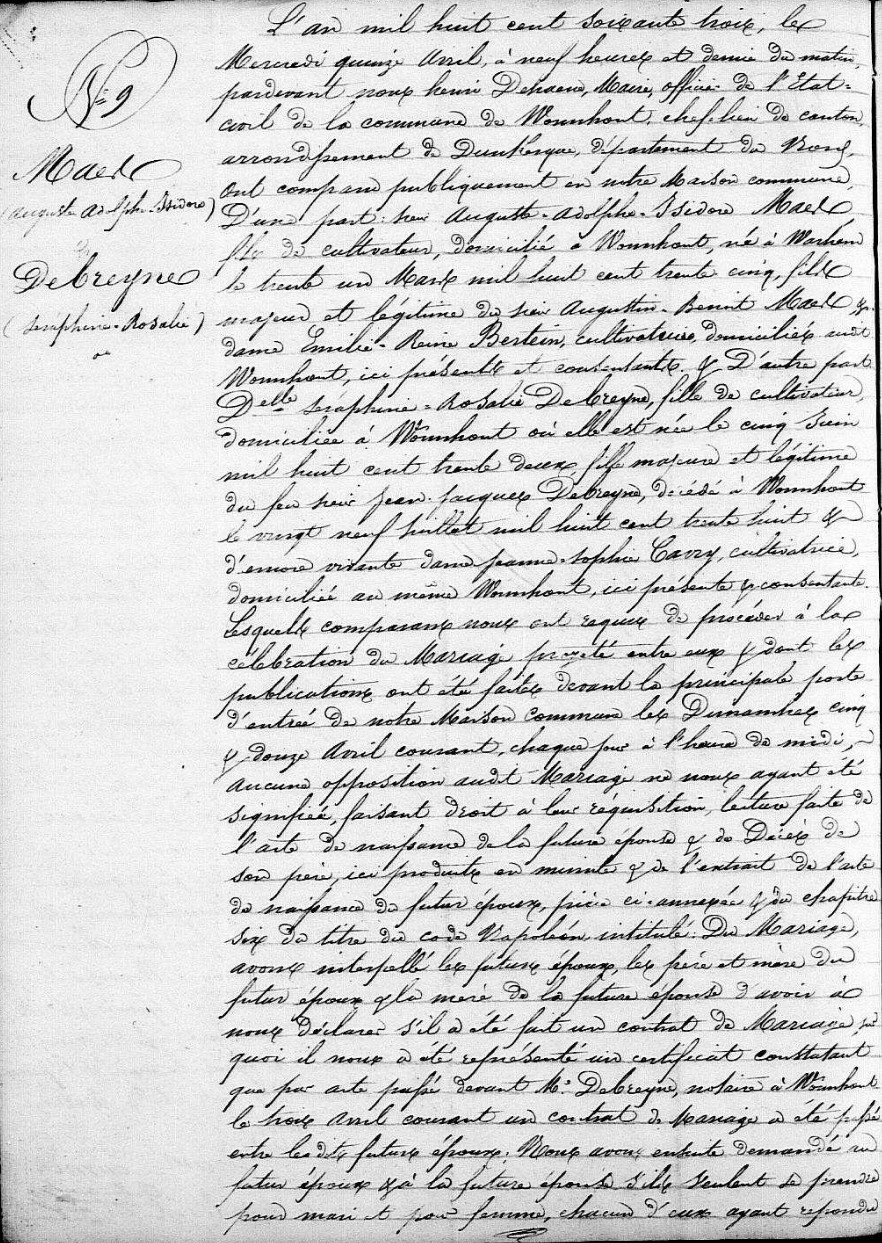 N° 9
Maes
(Auguste Adolphe-Isidore)
&
Debreyne
(Séraphine-Rosalie)
L'an mil huit cent soixante trois, le
Mercredi quinze Avril, à neuf heures et demie du matin,
pardevant nous henri Dehaene, Maire, officier de l'Etat-
civil de la commune de Wormhout, chef-lieu de canton,
arrondissement de Dunkerque, département du Nord,
Ont comparu publiquement en notre Maison commune,
D'une part: sieur Auguste-Adolphe-Isidore Maes
fils de cultivateur, domicilié à Wormhout, né à Warhem
le trente un Mars mil huit cent trente cinq, fils
majeur et légitime du sieur Augustin-Benoit Maes &
dame Emilie-Reine Bertein, cultivateurs, domiciliés audit
Wormhout, ici présents et consentants, & D'autre part
Delle Séraphine-Rosalie Debreyne, fille de cultivateur,
domiciliée à Wormhout où elle est née le cinq Juin
mil huit cent trente deux, fille majeure et légitime
du feu sieur Jean-Jacques Debreyne, décédé à Wormhout
le vingt neuf Juillet mil huit cent trente huit &
d'encore vivante dame Jeanne-Sophie Cavry, cultivatrice,
domiciliée au même Wormhout, ici présente & consentante.
Lesquels comparans nous ont requis de procéder à la
célébration du Mariage projeté entre eux & dont les
publications ont été faites devant la principale porte
d'entrée de notre Maison commune les Dimanches cinq
& douze Avril courant, chaque jour à l'heure de midi,
Aucune opposition audit Mariage ne nous ayant été
signifiée, faisant droit à leur réquisition, lecture faite de
l'acte de naissance de la future épouse & de Décès de
son père, ici produits en minute & de l'extrait de l'acte
de naissance du futur époux, pièce ci-annexée & du chapitre
six du titre du code Napoléon, intitulé: Du Mariage,
avons interpellé les futurs époux, les père et mère du
futur époux & la mère de la future épouse d'avoir à
nous déclarer s'il a été fait un contrat de Mariage sur
quoi il nous a été représenté un certificat constatant
que par acte passé devant Me Debreyne, notaire à Wormhout
le trois Avril courant un contrat de Mariage a été passé
entre lesdits futurs époux. Nous avons ensuite demandé au
futur époux & à la future épouse s'ils veulent se prendre
pour mari et pour femme, chacun d'eux ayant répondu